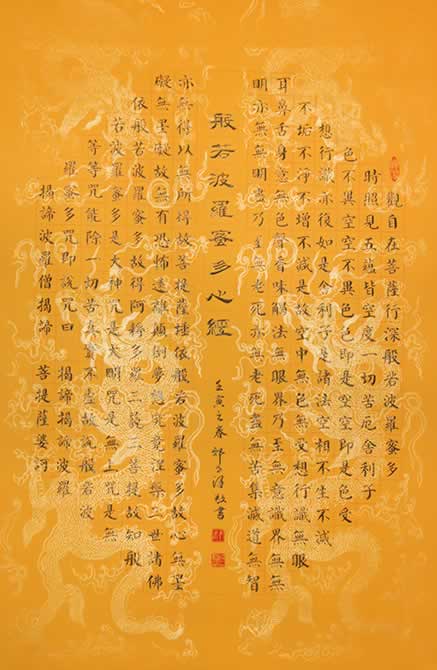 觀自在菩薩行深般若波羅蜜多
時照見五蘊皆空度一切苦厄舍利子
色不異空空不異色色即是空空即是色受
想行識亦復如是舍利子是諸法空相不生不滅
不垢不淨不增不減是故空中無色無受想行識無眼
耳鼻舌身意無色聲香味觸法無眼界乃至無意識界無無
明亦無無明盡乃至無老死亦無老死盡無苦集滅道無智
般若波羅蜜多心經
壬寅之春 敬書
亦無得以無所得故菩提薩埵依般若波羅蜜多故心無罣
礙無罣礙故無有恐怖遠離顛倒夢想究竟涅槃三世諸佛
依般若波羅蜜多故得阿耨多羅三藐三菩提故知般
若波羅蜜多是大神咒是大明咒是無上咒是無
等等咒能除一切苦真實不虛故說般若波
羅蜜多咒即說咒曰 揭諦揭諦波羅
揭諦波羅僧揭諦 菩提薩婆訶